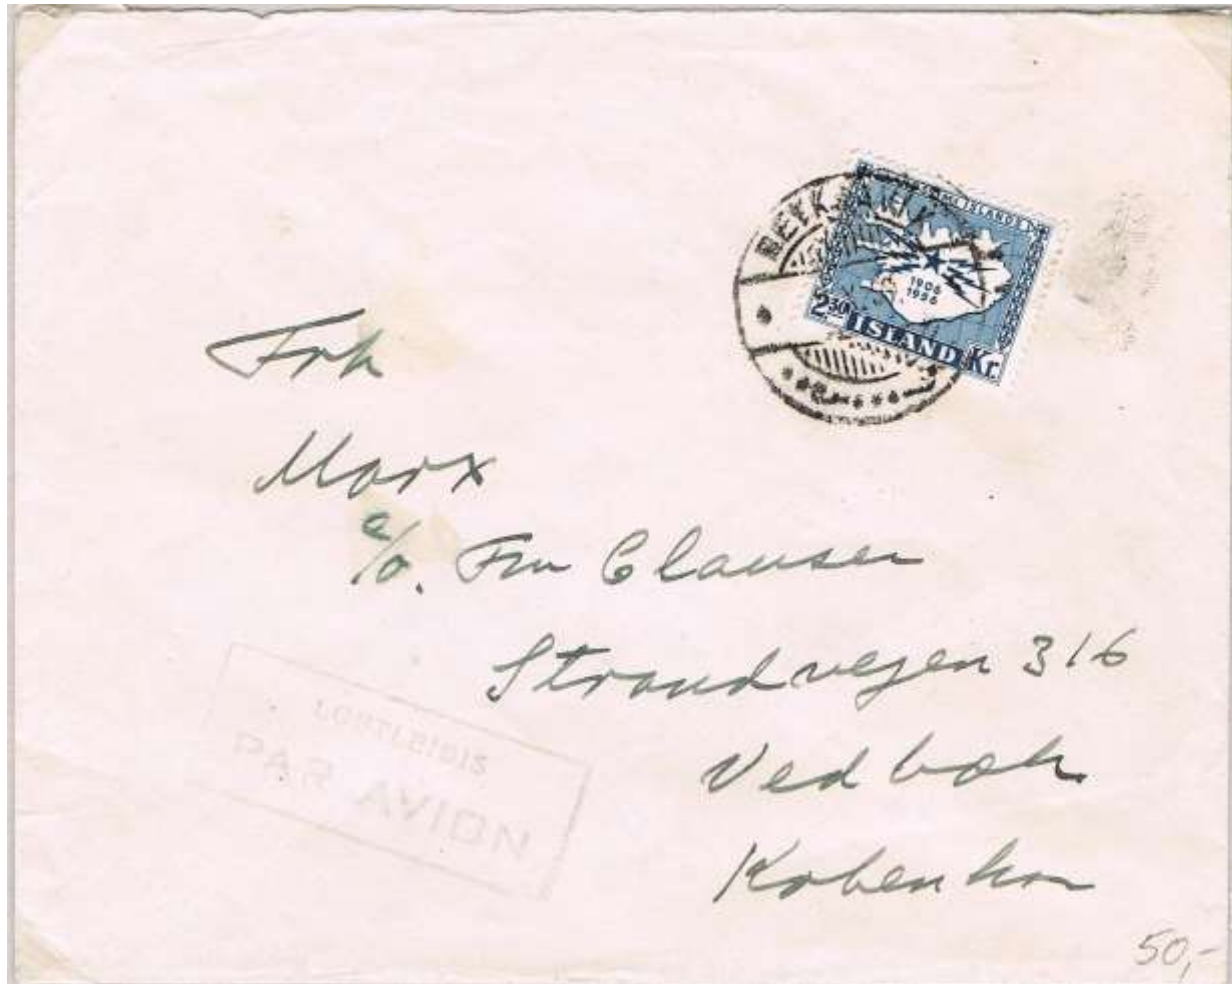 REYKJAVÍK
SÍMI ÍSLANDS
1906
1956
2.30 ÍSLAND Kr.
Frk
Marx
c/o. Fru Clausen
Strandvejen 316
Vedbæk
Københav
LOFTLEIÐIS
PAR AVION
50,-